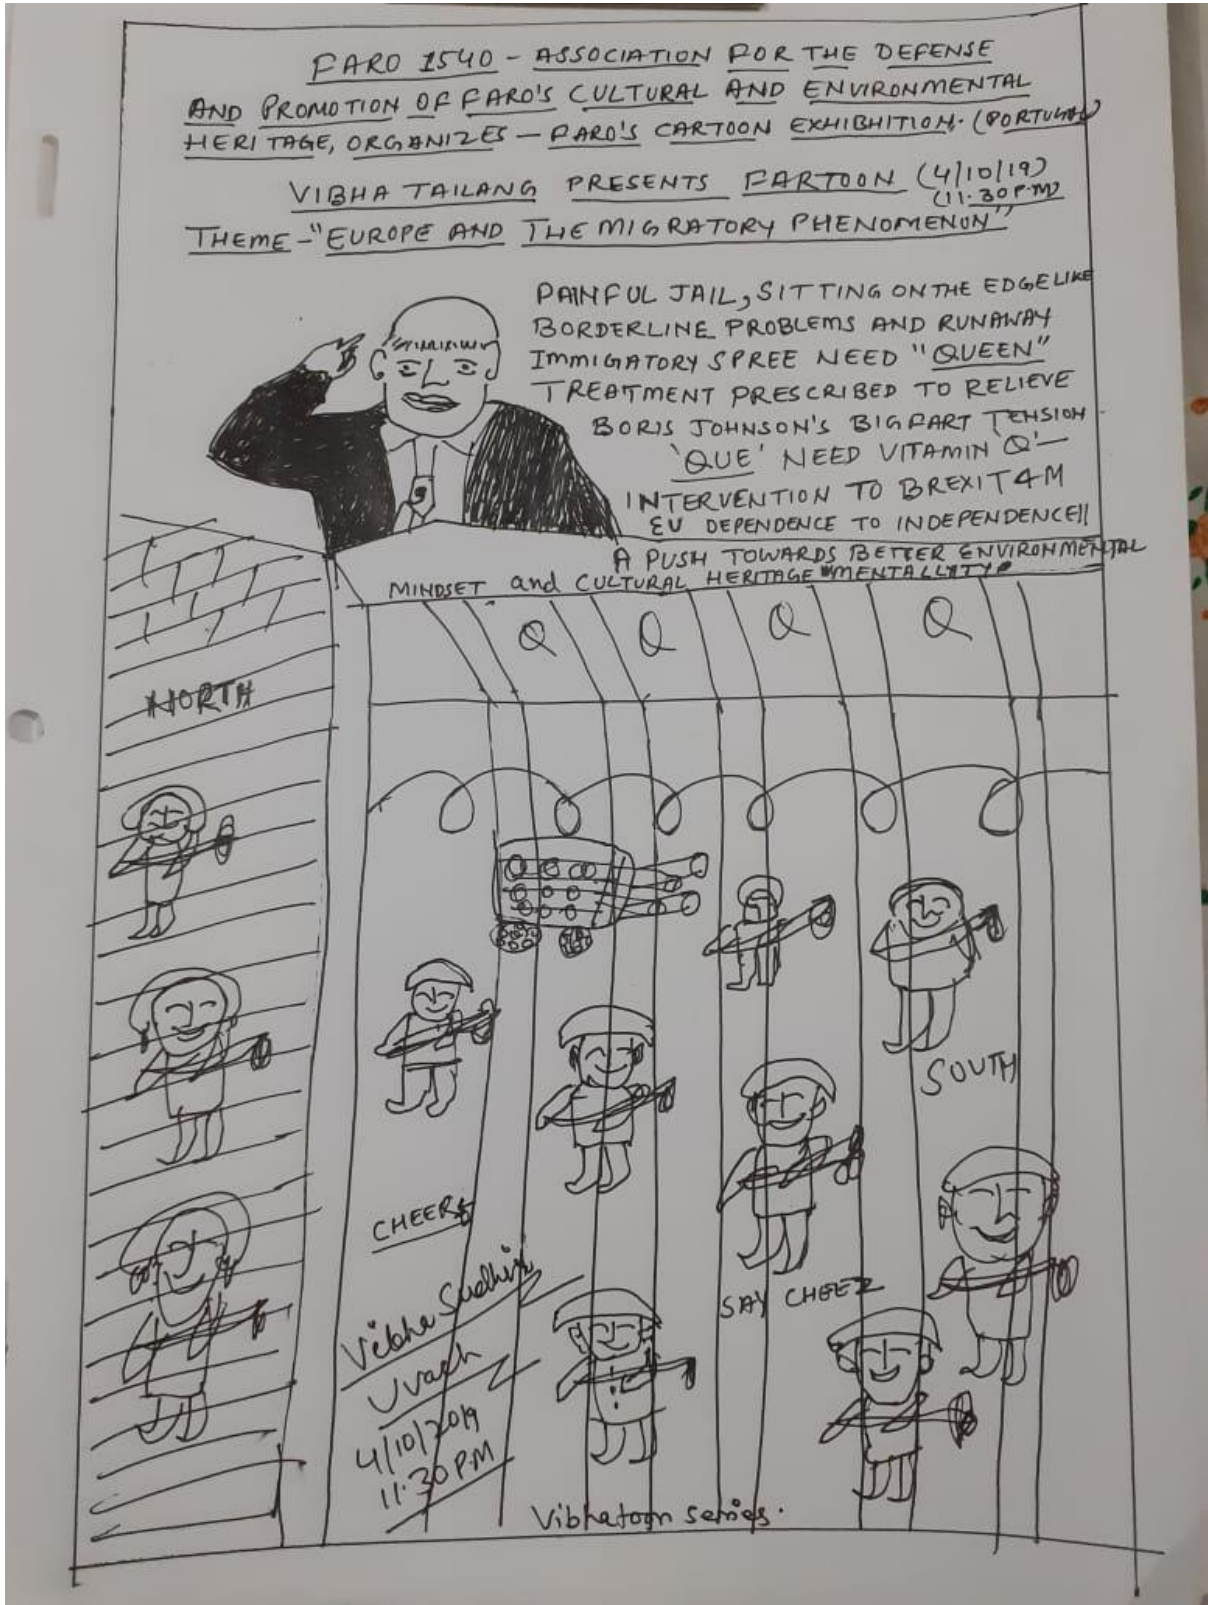 FARO 1540 - ASSOCIATION FOR THE DEFENSE
AND PROMOTION OF FARO'S CULTURAL AND ENVIRONMENTAL
HERITAGE, ORGANIZES - FARO'S CARTOON EXHIBHITION. (PORTUGAL)
VIBHA TAILANG PRESENTS FARTOON (4/10/19)
(11.30 P.M)
THEME - "EUROPE AND THE MIGRATORY PHENOMENON"
PAINFUL JAIL, SITTING ON THE EDGE LIKE
BORDERLINE PROBLEMS AND RUNAWAY
IMMIGATORY SPREE NEED "QUEEN"
TREATMENT PRESCRIBED TO RELIEVE
BORIS JOHNSON'S BIG FART TENSION
'QUE' NEED VITAMIN 'Q' -
INTERVENTION TO BREXIT 4M
EU DEPENDENCE TO INDEPENDENCE||
A PUSH TOWARDS BETTER ENVIRONMENTAL
MINDSET and CULTURAL HERITAGE "MENTALLITY"
Q Q Q Q
NORTH
SOUTH
CHEERS
SAY CHEEZ
Vibha Sudhir
Uvach
4/10/2019
11.30 P.M
Vibhatoon series.